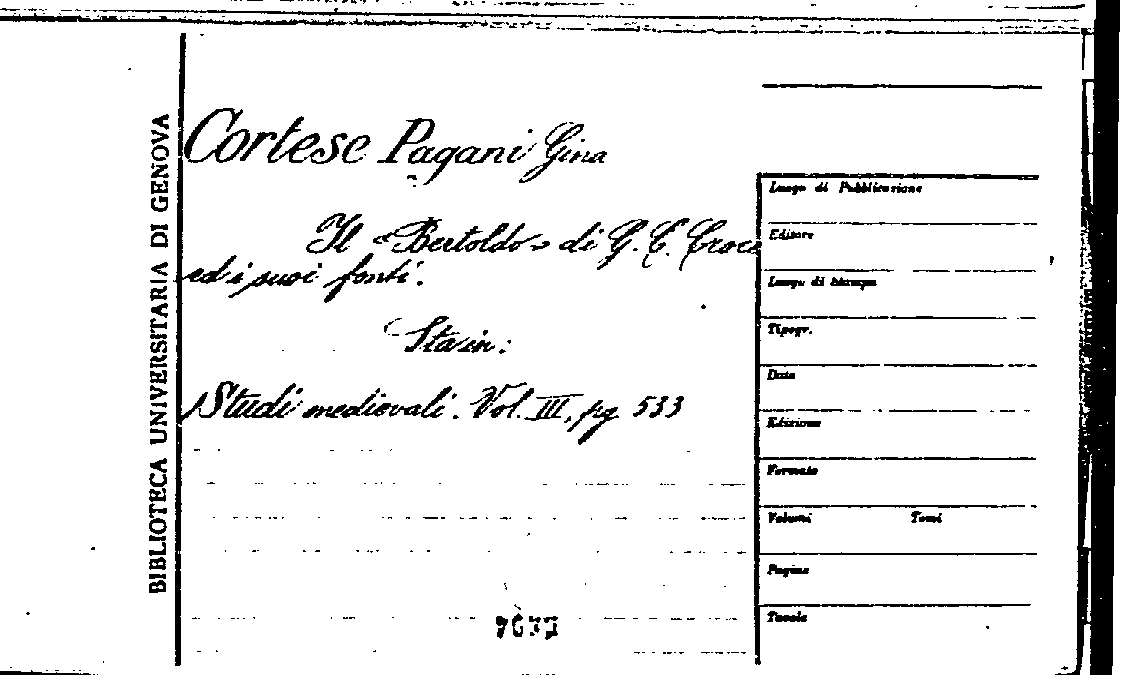 BIBLIOTECA UNIVERSITARIA DI GENOVA
Cortese Pagani Gina
Il «Bertoldo» di G. C. Croce
ed i suoi fonti.
Sta in:
Studi medievali. Vol. III, pg 533
Luogo di Pubblicazione
Editore
Luogo di Stampa
Tipogr.
Data
Edizione
Formato
Volumi Tomi
Pagine
Tavole